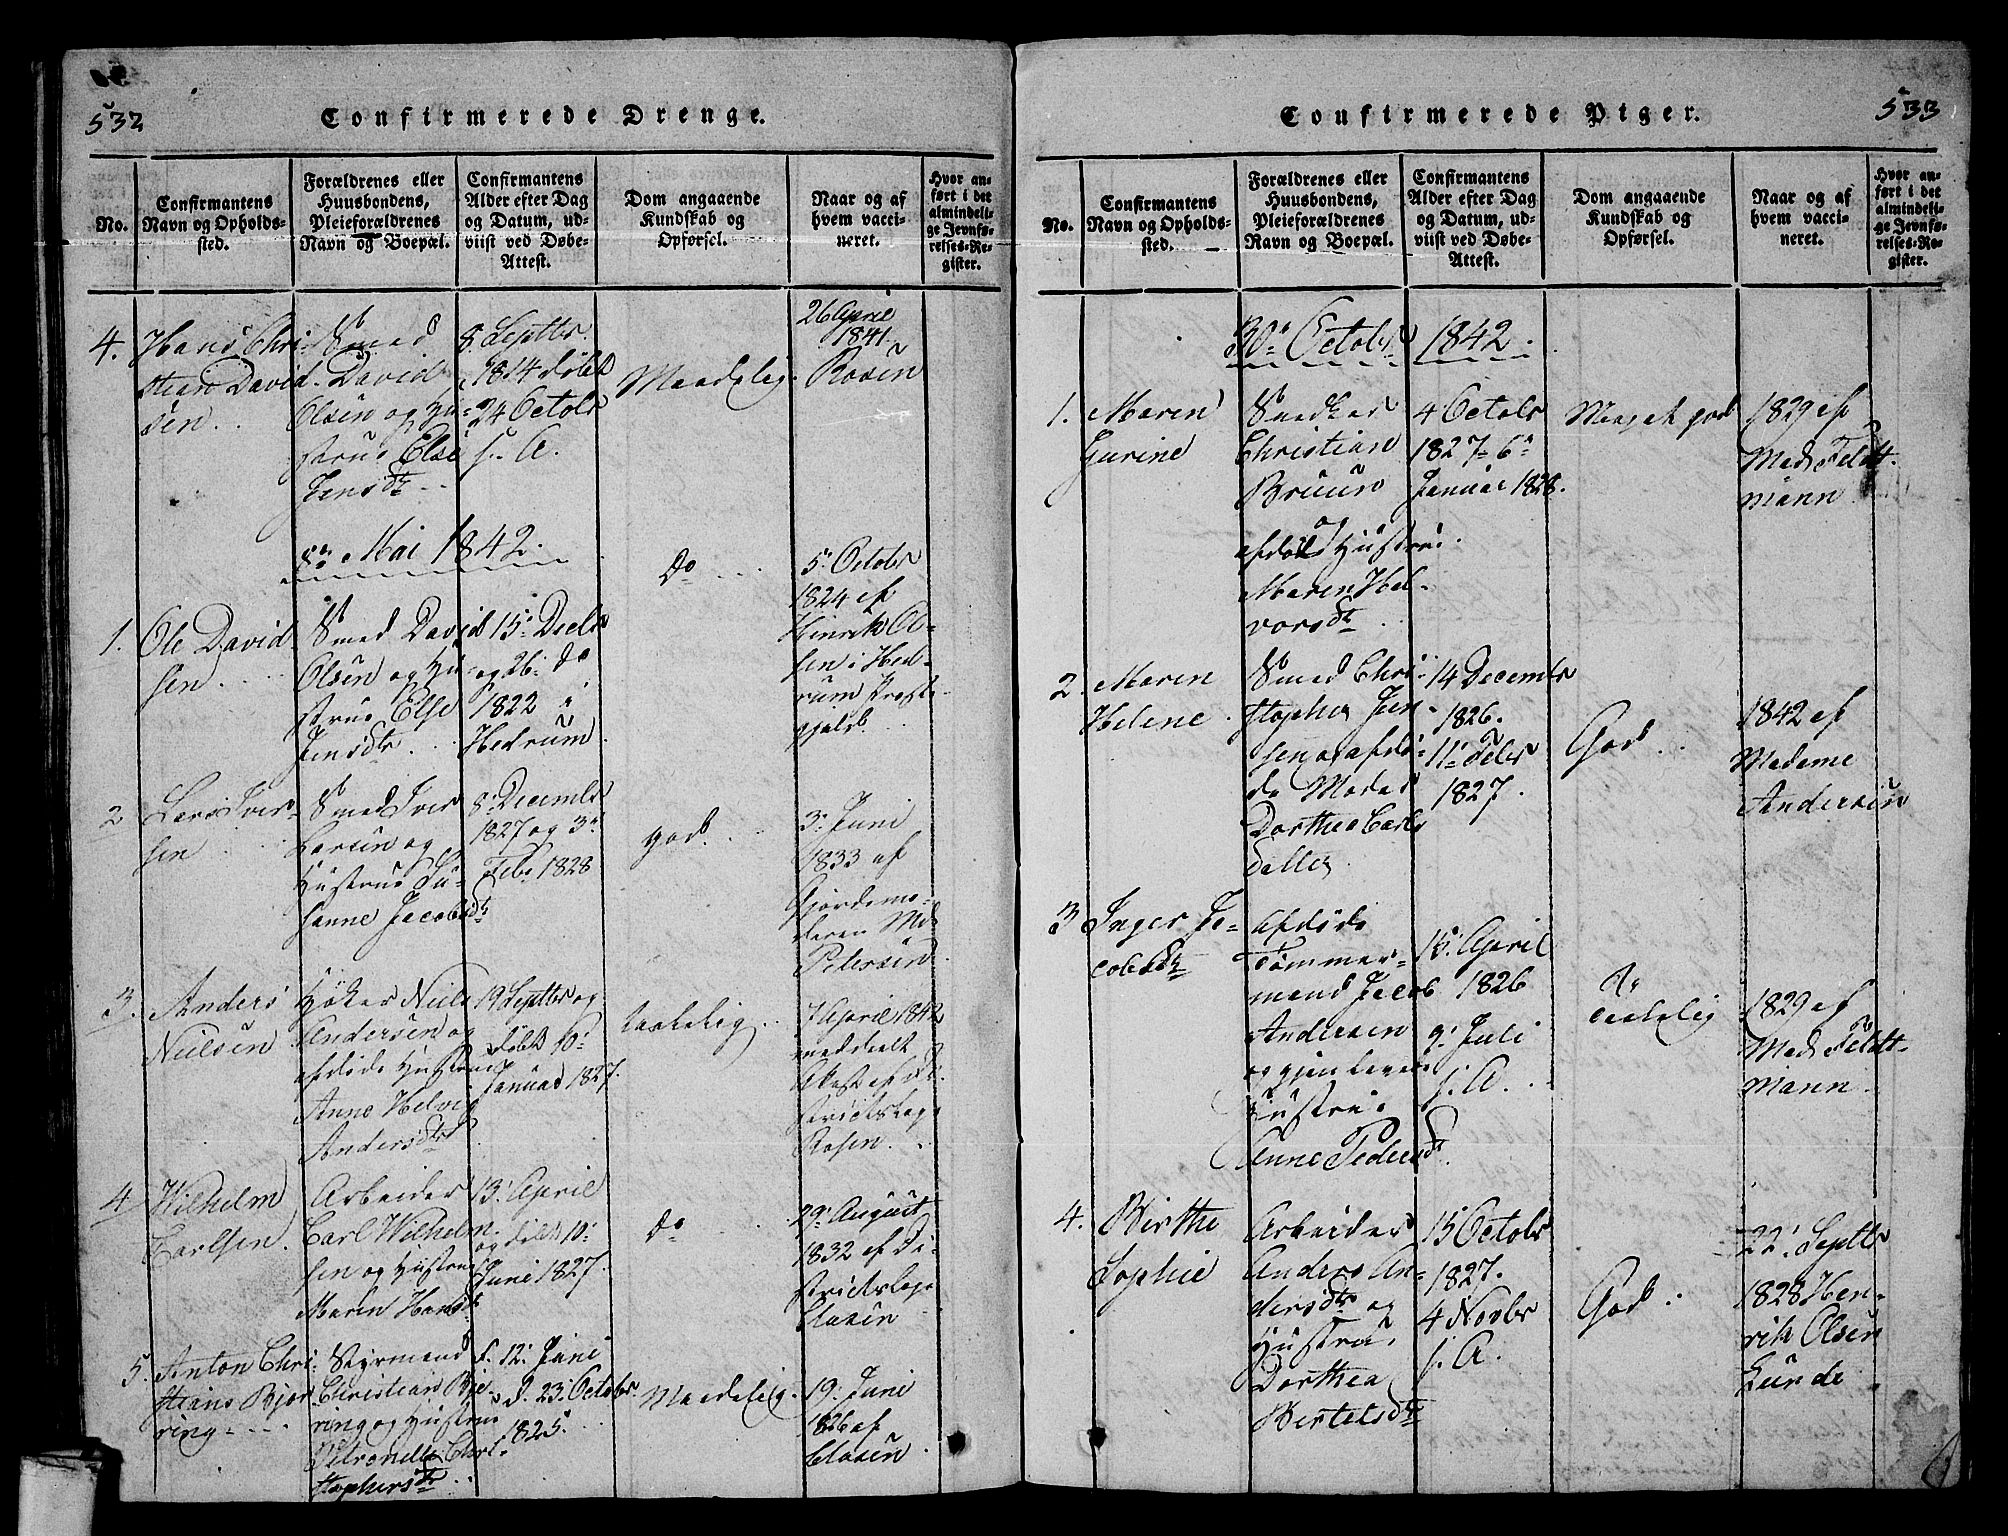 532
Confirmerede Drenge.
No.
Confirmantens
Navn og Opholds-
sted.
Forældrenes eller
Huusbondens,
Pleieforældrenes
Navn og Boepæl.
Confirmantens
Alder efter Dag
og Datum, ud-
viist ved Døbe-
Attest.
Dom angaaende
Kundskab og
Opførsel.
Naar og af
hvem vacci-
neret.
Hvor an-
ført i det
almindeli-
ge Jevnfø-
relses-Re-
gister.
4.
Hans Chri-
stian David-
sen.
Smed
David
Olsen og Hu-
strue Else
Jensdtr
8. Septbr.
1814 døbt
24 Octobr
s. A.
Maadelig.
26 April
1841.
Rosen
8de Mai 1842.
1.
Ole David-
sen.
Smed David
Olsen og Hu-
strue Else
Jensdtr.
15. Decbr
og 26. do
1822 i
Hedrum.
Do
5. Octobr
1824 af
Hinrik Ol-
sen i Hed-
rum Præste-
gjeld.
2
Lars Iver-
sen
Smed Iver
Larsen og
Hustrue Su-
sanne Jacobsdtr
8. Decembr
1827 og 3.
Febr 1828
god.
3. Juni
1833 af
Gjordemo-
deren Md
Petersen.
3.
Anders
Nielsen
Høker Niels
Andersen og
afdøde Hustrue
Anne Helvig
Andersdtr
19 Septbr og
døbt 10.
Januar 1827.
taalelig
7 April 1842
meddeelt
Attest af Di-
strictslæge
Rosen.
4
Wilhelm
Carlsen.
Arbeider
Carl Wilhelm-
sen og Hustrue
Maren Hansdtr
13. April
og døbt 10.
Juni 1827.
Do
29. August
1832 af Di-
strictslæge
Clasen
5.
Anton Chri-
stians Bjer-
ring.
Styrmand
Christian Bje-
ring og Hustrue
Petronelle Chri-
stophersdtr.
f. 12. Juni
d. 23. Octobr.
1825.
Maadelig.
19. Juni
1826 af
Clasen.
533
Confirmerede Piger.
No.
Confirmantens
Navn og Opholds-
sted.
Forældrenes eller
Huusbondens,
Pleieforældrenes
Navn og Boepæl.
Confirmantens
Alder efter Dag
og Datum, ud-
viist ved Døbe-
Attest.
Dom angaaende
Kundskab og
Opførsel.
Naar og af
hvem vacci-
neret.
Hvor an-
ført i det
almindeli-
ge Jevnfø-
relses-Re-
gister.
30. Octobr 1842.
1.
Maren
Gurine
Snedker
Christian
Bruun
og
afdøde Hustrue
Maren Hal-
vorsdtr.
4 Octobr
1827 6.
Januar 1828.
Meget god
1829 af
Mad. Feldt-
mann.
2.
Maren
Helene.
Smed Chri-
stopher Jen-
sen og afdø-
de Moder
Dorthea Carls
datter
14 Decembr
1826.
11. Febr
1827.
God.
1842 af
Madame
Andersen
3
Inger Ja-
cobsdtr
Afdøde
Tømmer-
mand Jacob
Andersen
og gjenlevende
Hustrue
Anne Pedersdtr.
15. April
1826
9. Juli
s. A.
taalelig
1829 af
Mad. Feldt-
mann.
4.
Birthe
Sophie
Arbeider
Anders An-
dersdtr og
Hustrue
Dorthea
Bertelsdtr
15 Octobr
1827.
4 Novbr
s. A.
God.
22. Septbr
1828 Hen-
rik Olsen
Lunde